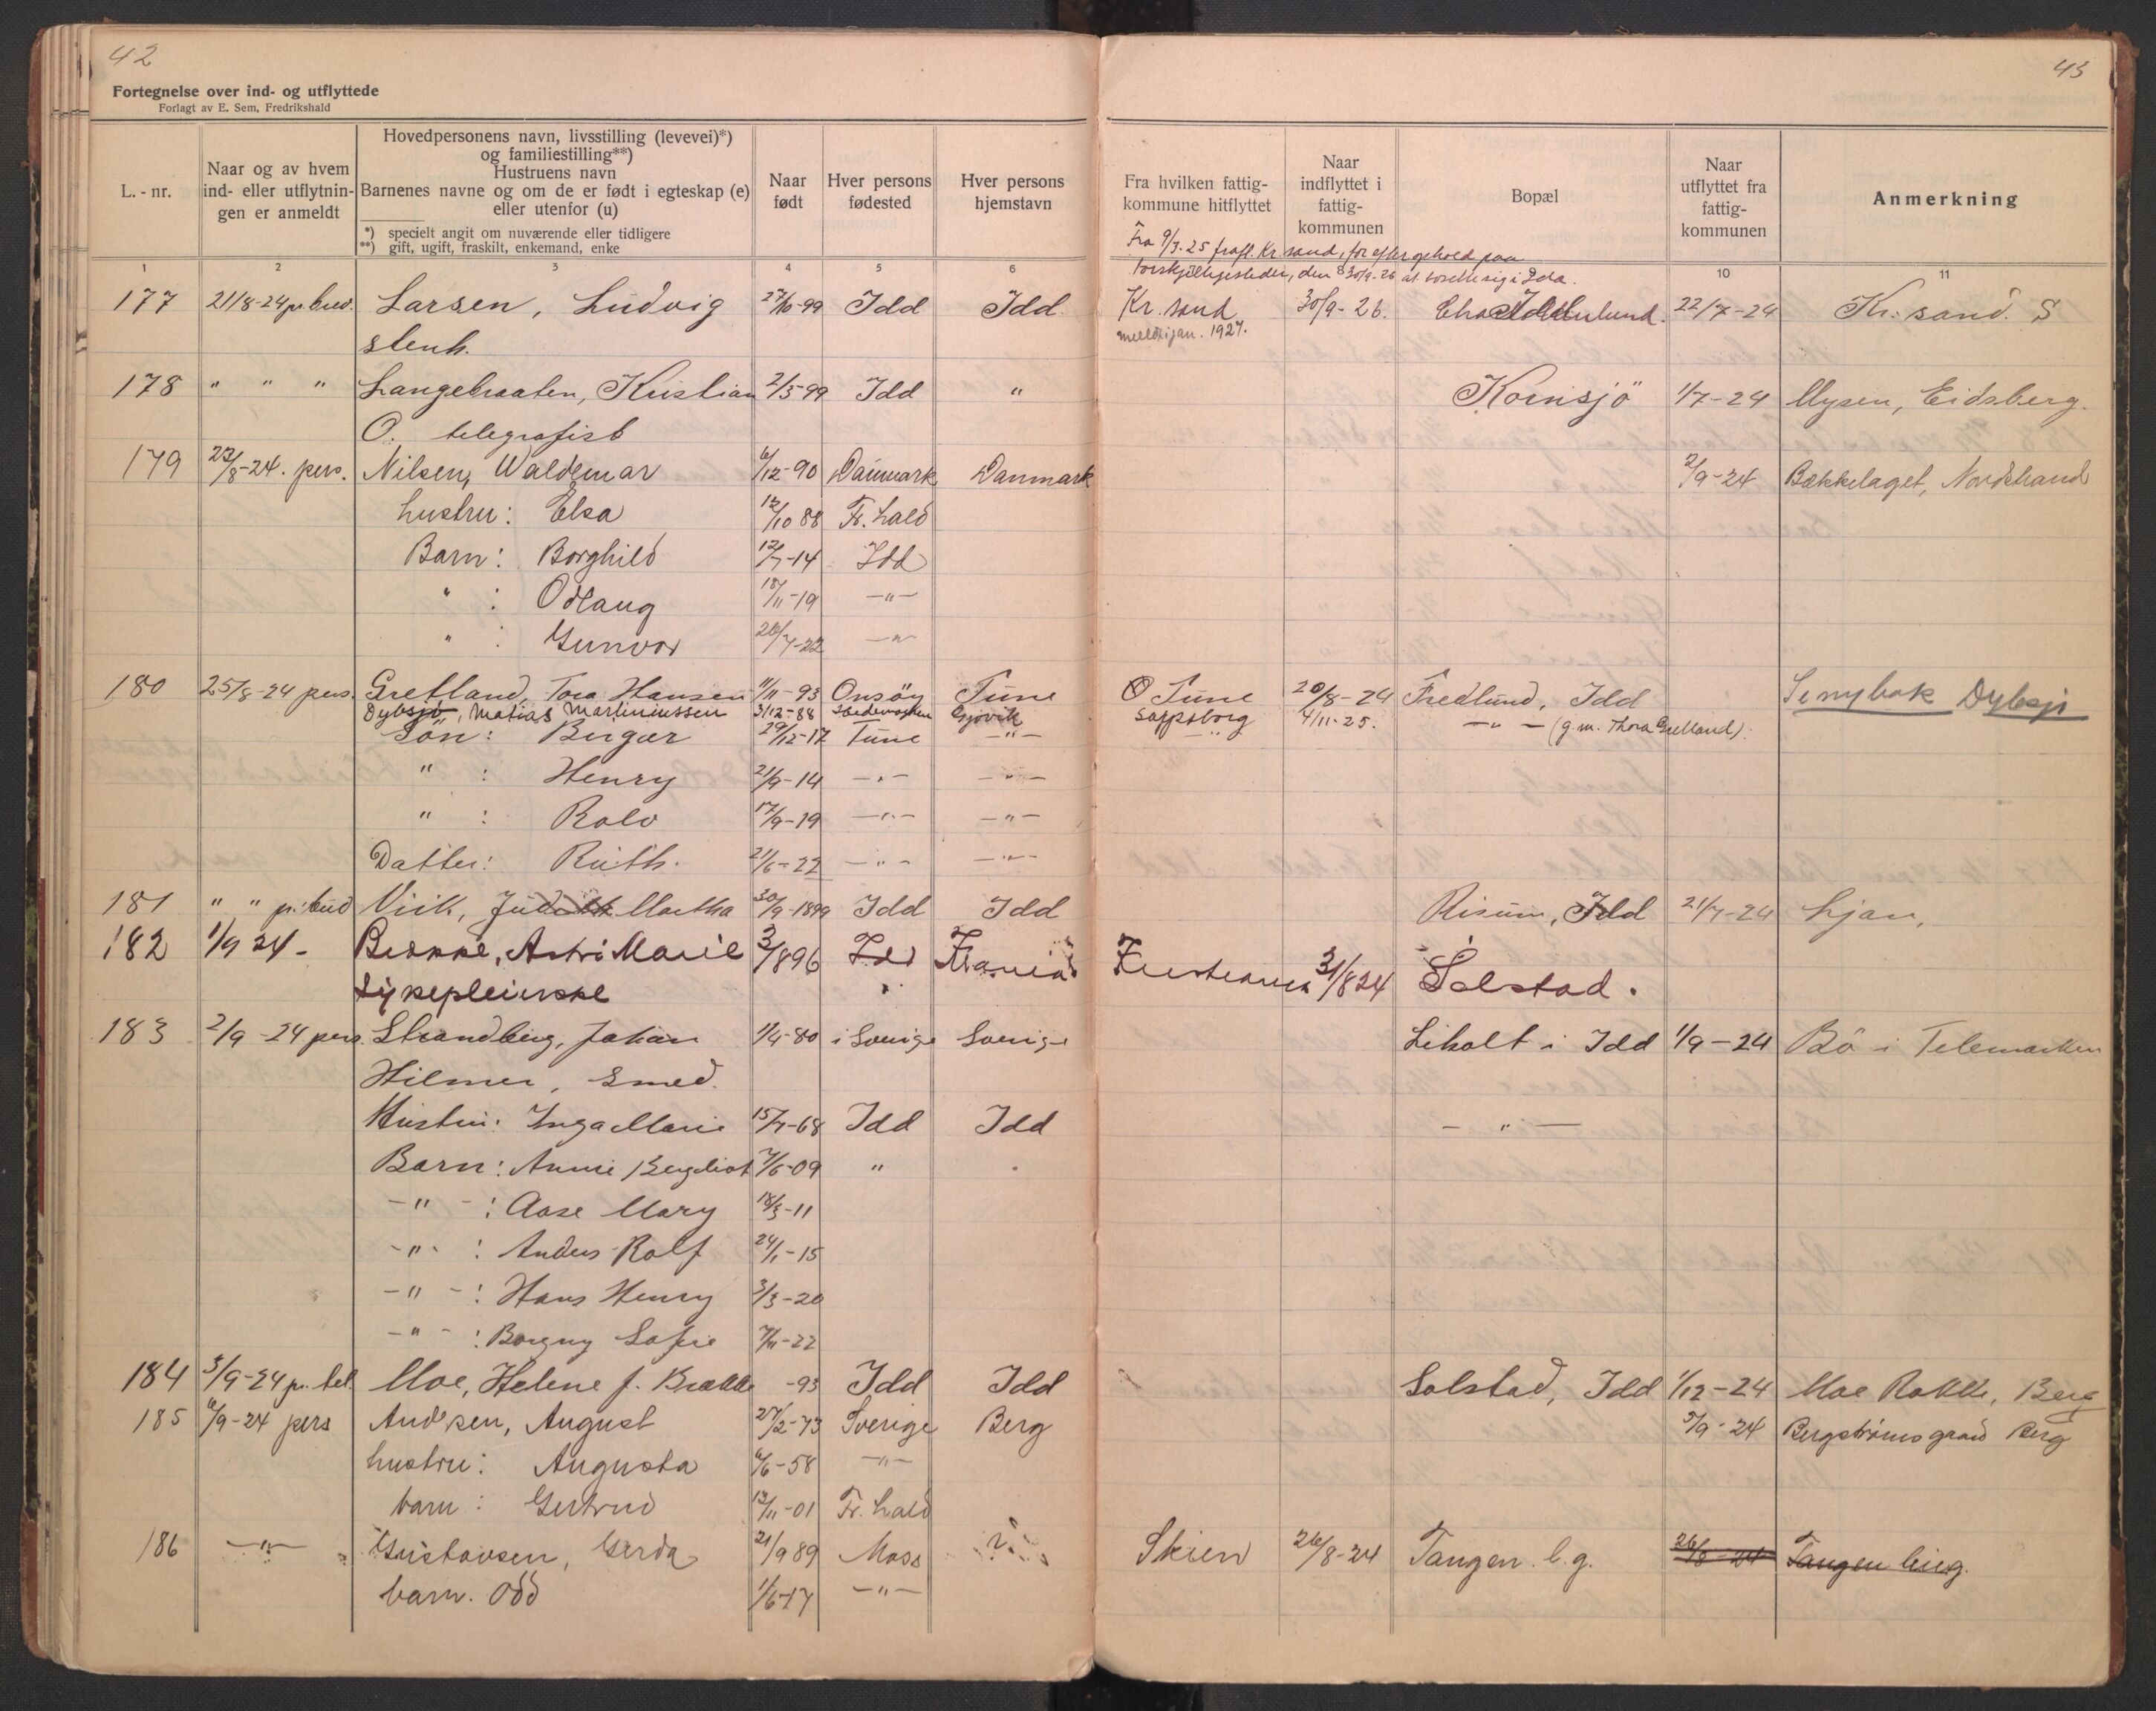 42
43
Fortegnelse over ind- og utflyttede
Forlagt av E. Sem, Fredrikshald
L. - nr.
Naar og av hvem ind- eller utflytnin- gen er anmeldt
Hovedpersonens navn, livsstilling (levevei)*)
og familiestilling**)
Hustruens navn
Barnenes navne og om de er født i egteskap (e)
eller utenfor (u)
*) specielt angit om nuværende eller tidligere
**) gift, ugift, fraskilt, enkemand, enke
Naar født
Hver persons fødested
Hver persons hjemstavn
Fra hvilken fattig- kommune hitflyttet
Naar indflyttet i fattig- kommunen
Bopæl
Naar utflyttet fra fattig- kommunen
Anmerkning
1 2 3 4 5 6 10 11
177 21/8-24 pr. bud. Larsen, Ludvig 27/10-99 Idd Idd Kr. sand 30/9-26. 22/7-24 Kr. sand. S
stenh. meldt i jan. 1927.
178 " " " Langebraaten, Kristian 2/5-99 Idd " Kornsjö 1/7-24 Mysen, Eidsberg.
O. telegrafist
179 22/8-24. pers. Nilsen, Waldemar 6/12-90 Danmark Danmark 2/9-24 Bækkelaget, Nordstrand
hustru: Elsa 12/10 88 Fr.hald
Barn: Borghild 12/7-14 Idd
" : Odlaug 18/11-19 -"-
" : Gunvor 26/7-22 -"-
180 25/8-24 pers. Gretland, Tora Hansen 11/11-93 Onsöy Tune Tune 20/8-24 Fredlund, Idd Se nybok Dybsjø
Dybsjø, Matias Martiniussen 3/12-88 Gjøvik Sarpsborg 4/11-25. -"- (g.m. Thora Gretland).
Sön: Birger 29/12-12 Tune -"-
" : Henry 21/9-14 -"- -"-
" : Rolv 17/9-19 -"- -"-
Datter: Ruth. 21/6-22 -"- -"-
181 " " pr. bud Viik, Judith Martha 30/9-1899 Idd Idd Risum, Idd 21/7-24 Ljan,
182 1/9 24- Astri Marie 3/1896 Idd Kristiania 31/8 24 Solstad.
Sykepleierske
183 2/9-24 pers. Strandberg, Johan 1/4-80 i Sverige Sverige Liholt i Idd 1/9-24 Bö i Telemarken
Hilmer, Smed.
Hustru: Inga Marie 15/7-68 Idd Idd - " -
Barn: Annie Bergliot 7/6-09 "
-"- : Aase Mary 18/3-11
-"- : Anders Rolf 24/1-15
-"- : Hans Henry 3/3-20
-"- : Borgny Sofie 7/11-22
184 3/9-24 pr. tel. Moe, Helene f. Brække -93 Idd Idd Solstad, Idd 1/12-24 Moe Rokke, Berg
185 6/9-24 pers Andersen, August 27/2-73 Sverige Berg 5/9-24 Bergstrømsgaard Berg
hustru: Augusta 6/6-58 -"-
barn: Gertrud 13/11-01 Fr.hald
186 -"- Gustavsen, Gerda 21/9 89 Moss ? Skien 26/8-24 Tangen b.g. 26/8-24 Tangen bieg.
barn. Odd 1/6-17 -"-